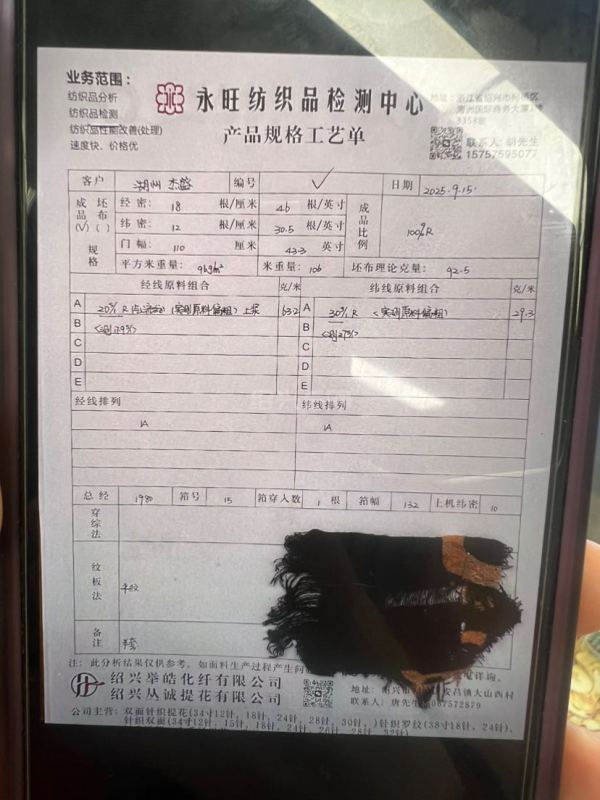 业务范围：
纺织品分析
纺织品检测
纺织品性能改善(处理)
速度快、价格优
永旺纺织品检测中心
产品规格工艺单
地址：浙江省绍兴市柯桥区
3358室
联系人：胡先生
15757595077
客户 湖州 杰盛 编号 ✓ 日期 2025.9.15
成品(√) 坯布( ) 规格
经密：18 根/厘米 46 根/英寸
纬密：12 根/厘米 30.5 根/英寸
门幅：110 厘米 43.3 英寸
成品比例 100%R
平方米重量： 96g/m² 米重量：106 坯布理论克量：92.5
经线原料组合 克/米 纬线原料组合 克/米
A 20% R (实测原料偏粗) 上浆 63.2 A 30% R <实测原料偏粗> 29.3
B B
C C
D D
E E
经线排列 纬线排列
1A 1A
总经 1980 筘号 15 筘穿入数 1 根 筘幅 132 上机纬密 10
穿综法
纹板法 平纹
备注
注：此分析结果仅供参考，如面料生产过程产生问
电详询。
绍兴举皓化纤有限公司
绍兴丛诚提花有限公司
安昌镇大山西村
联系人：唐先生
公司主营：双面针织提花(34寸12针，18针，24针，28针，30针，)针织罗纹(38寸18针、24针)、
针织双面(34寸12针，15针，18针，24针，26针，28针，32针)